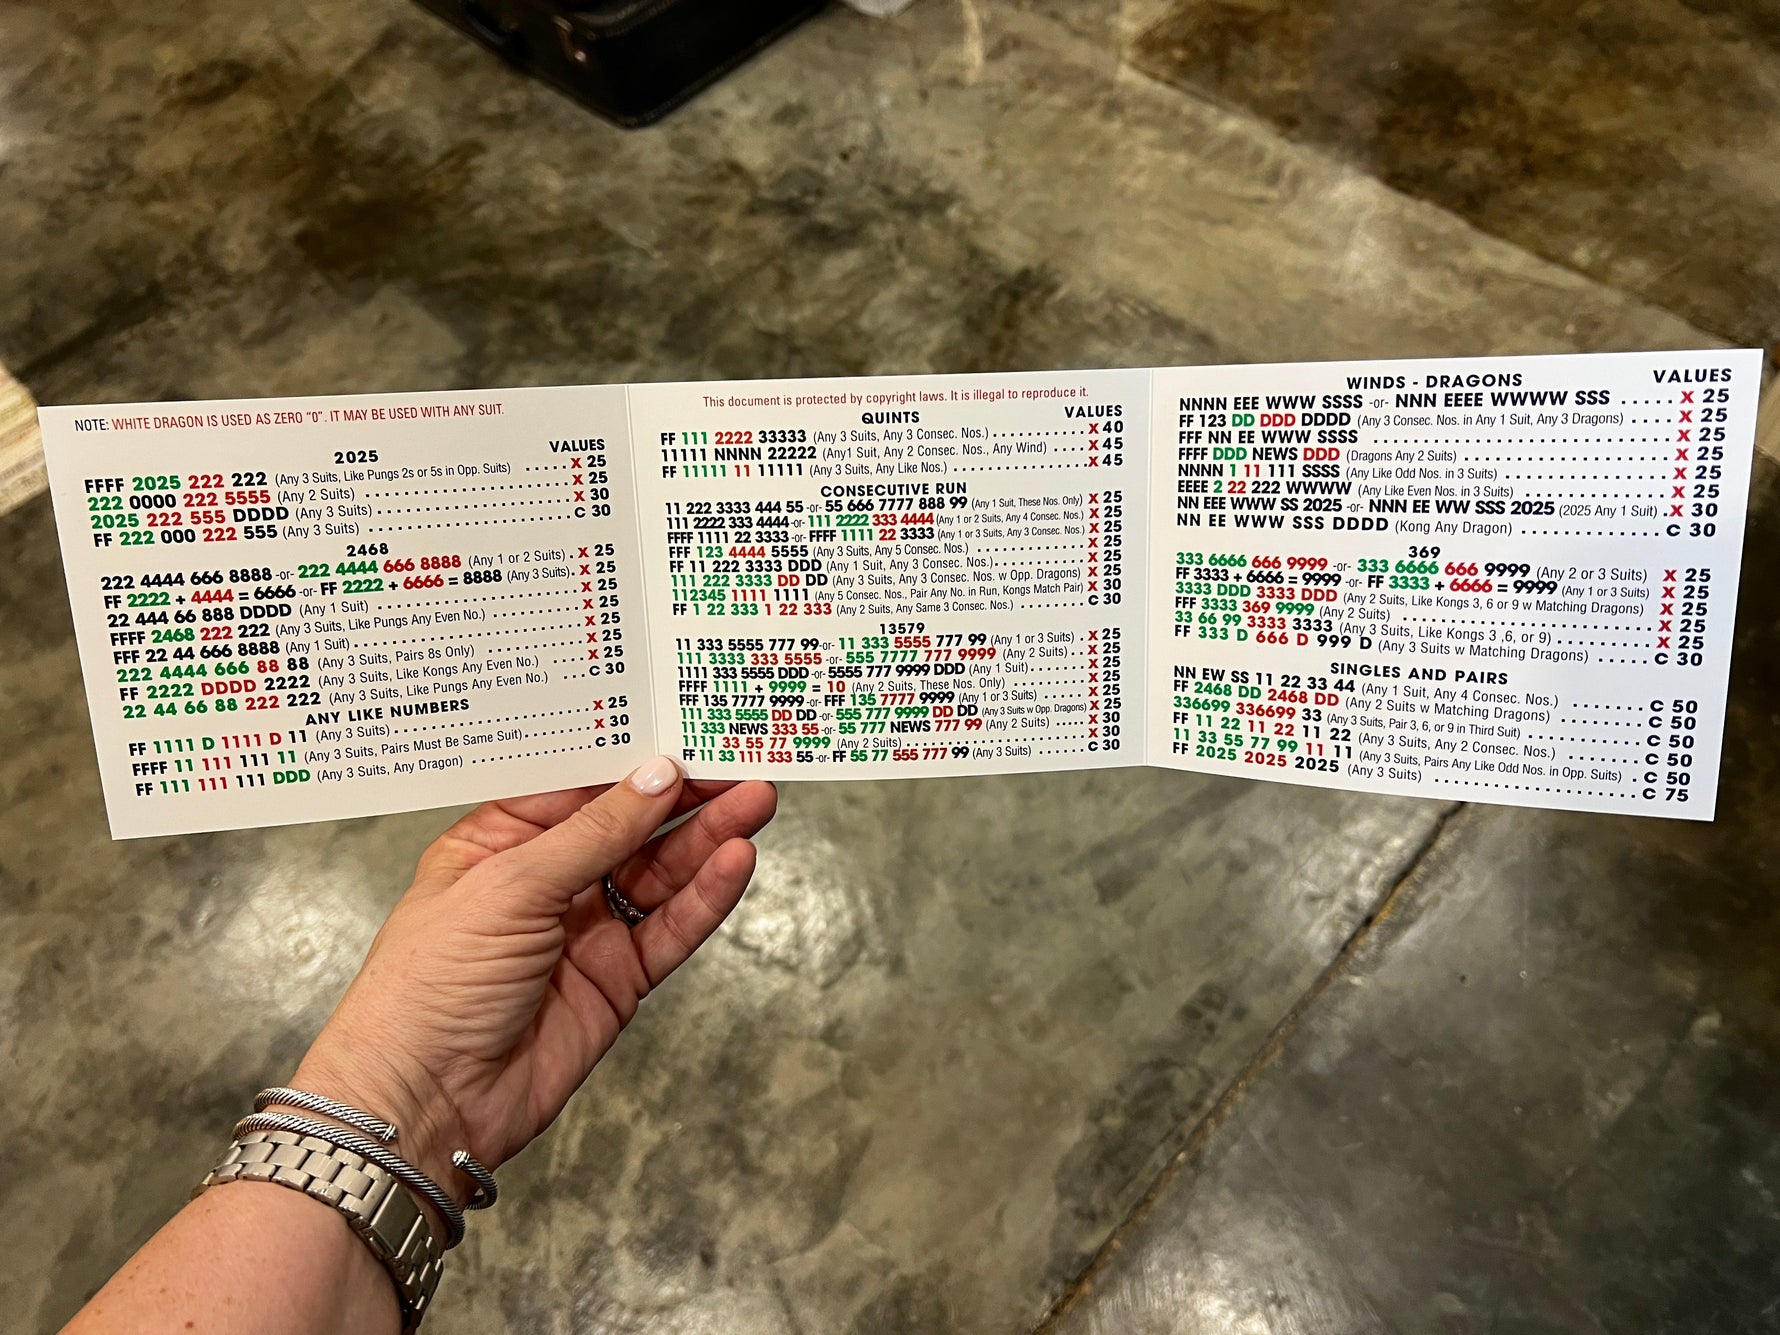 NOTE: WHITE DRAGON IS USED AS ZERO "0". IT MAY BE USED WITH ANY SUIT.
VALUES
2025
FFFF 2025 222 222 (Any 3 Suits, Like Pungs 2s or 5s in Opp. Suits) ..... X 25
222 0000 222 5555 (Any 2 Suits) ..... X 25
2025 222 555 DDDD (Any 3 Suits) ..... X 30
FF 222 000 222 555 (Any 3 Suits) ..... C 30
2468
222 4444 666 8888 -or- 222 4444 666 8888 (Any 1 or 2 Suits) . X 25
FF 2222 + 4444 = 6666 -or- FF 2222 + 6666 = 8888 (Any 3 Suits). X 25
22 444 66 888 DDDD (Any 1 Suit) ..... X 25
FFFF 2468 222 222 (Any 3 Suits, Like Pungs Any Even No.) ..... X 25
FFF 22 44 666 8888 (Any 1 Suit) ..... X 25
222 4444 666 88 88 (Any 3 Suits, Pairs 8s Only) ..... X 25
FF 2222 DDDD 2222 (Any 3 Suits, Like Kongs Any Even No.) .... X 25
22 44 66 88 222 222 (Any 3 Suits, Like Pungs Any Even No.) ... C 30
ANY LIKE NUMBERS
FF 1111 D 1111 D 11 (Any 3 Suits) ..... X 25
FFFF 11 111 111 11 (Any 3 Suits, Pairs Must Be Same Suit) ..... X 30
FF 111 111 111 DDD (Any 3 Suits, Any Dragon) ..... C 30
This document is protected by copyright laws. It is illegal to reproduce it.
QUINTS VALUES
FF 111 2222 33333 (Any 3 Suits, Any 3 Consec. Nos.) ..... X 40
11111 NNNN 22222 (Any1 Suit, Any 2 Consec. Nos., Any Wind) ..... X 45
FF 11111 11 11111 (Any 3 Suits, Any Like Nos.) ..... X 45
CONSECUTIVE RUN
11 222 3333 444 55 -or- 55 666 7777 888 99 (Any 1 Suit, These Nos. Only) X 25
111 2222 333 4444 -or- 111 2222 333 4444 (Any 1 or 2 Suits, Any 4 Consec. Nos.) X 25
FFFF 1111 22 3333 -or- FFFF 1111 22 3333 (Any 1 or 3 Suits, Any 3 Consec. Nos.) X 25
FFF 123 4444 5555 (Any 3 Suits, Any 5 Consec. Nos.) ..... X 25
FF 11 222 3333 DDD (Any 1 Suit, Any 3 Consec. Nos.) ..... X 25
111 222 3333 DD DD (Any 3 Suits, Any 3 Consec. Nos. w Opp. Dragons) X 25
112345 1111 1111 (Any 5 Consec. Nos., Pair Any No. in Run, Kongs Match Pair) X 30
FF 1 22 333 1 22 333 (Any 2 Suits, Any Same 3 Consec. Nos.) ..... C 30
13579
11 333 5555 777 99 -or- 11 333 5555 777 99 (Any 1 or 3 Suits) . X 25
111 3333 333 5555 -or- 555 7777 777 9999 (Any 2 Suits) ..... X 25
1111 333 5555 DDD -or- 5555 777 9999 DDD (Any 1 Suit) ..... X 25
FFFF 1111 + 9999 = 10 (Any 2 Suits, These Nos. Only) ..... X 25
FFF 135 7777 9999 -or- FFF 135 7777 9999 (Any 1 or 3 Suits) ..... X 25
111 333 5555 DD DD -or- 555 777 9999 DD DD (Any 3 Suits w Opp. Dragons) X 25
11 333 NEWS 333 55 -or- 55 777 NEWS 777 99 (Any 2 Suits) ..... X 30
1111 33 55 77 9999 (Any 2 Suits) ..... X 30
FF 11 33 111 333 55 -or- FF 55 77 555 777 99 (Any 3 Suits) ..... C 30
WINDS - DRAGONS VALUES
NNNN EEE WWW SSSS -or- NNN EEEE WWWW SSS ..... X 25
FF 123 DD DDD DDDD (Any 3 Consec. Nos. in Any 1 Suit, Any 3 Dragons) ..... X 25
FFF NN EE WWW SSSS ..... X 25
FFFF DDD NEWS DDD (Dragons Any 2 Suits) ..... X 25
NNNN 1 11 111 SSSS (Any Like Odd Nos. in 3 Suits) ..... X 25
EEEE 2 22 222 WWWW (Any Like Even Nos. in 3 Suits) ..... X 25
NN EEE WWW SS 2025 -or- NNN EE WW SSS 2025 (2025 Any 1 Suit) . X 30
NN EE WWW SSS DDDD (Kong Any Dragon) ..... C 30
369
333 6666 666 9999 -or- 333 6666 666 9999 (Any 2 or 3 Suits) X 25
FF 3333 + 6666 = 9999 -or- FF 3333 + 6666 = 9999 (Any 1 or 3 Suits) X 25
3333 DDD 3333 DDD (Any 2 Suits, Like Kongs 3, 6 or 9 w Matching Dragons) X 25
FFF 3333 369 9999 (Any 2 Suits) ..... X 25
33 66 99 3333 3333 (Any 3 Suits, Like Kongs 3 ,6, or 9) ..... X 25
FF 333 D 666 D 999 D (Any 3 Suits w Matching Dragons) ..... C 30
SINGLES AND PAIRS
NN EW SS 11 22 33 44 (Any 1 Suit, Any 4 Consec. Nos.) ..... C 50
FF 2468 DD 2468 DD (Any 2 Suits w Matching Dragons) ..... C 50
336699 336699 33 (Any 3 Suits, Pair 3, 6, or 9 in Third Suit) ..... C 50
FF 11 22 11 22 11 22 (Any 3 Suits, Any 2 Consec. Nos.) ..... C 50
11 33 55 77 99 11 11 (Any 3 Suits, Pairs Any Like Odd Nos. in Opp. Suits) . C 50
FF 2025 2025 2025 (Any 3 Suits) ..... C 75